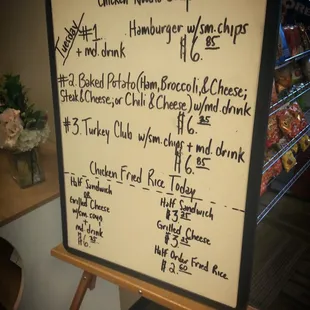 Chicken
Tuesday
#1. Hamburger w/sm.chips
+ md. drink $6.85
#2. Baked Potato(Ham,Broccoli,&Cheese;
Steak&Cheese;or Chili &Cheese) w/md.drink
$6.25
#3. Turkey Club w/sm.chips + md. drink
$6.85
Chicken Fried Rice Today
Half Sandwich
OR
Grilled Cheese
w/sm. soup
+
md. drink
$6.35
Half Sandwich
$3.25
Grilled Cheese
$3.25
Half Order Fried Rice
$2.60